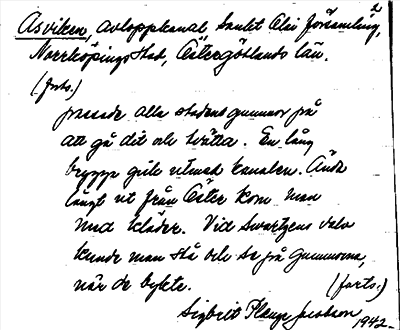 2
Åsviken, avloppskanal, Sankt Olai församling,
Norrköpings stad, Östergötlands län.
(forts.)
pende alla stadens gummor på
att gå dit och tvätta. En lång
brygga gick utmed kanalen. Ända
långt ut från Öster kom man
med kläder. Vid Swartzens valv
kunde man stå och se på gummorna,
när de bykte. (forts.)
Sigbrit Plenge Jacobson
1942-